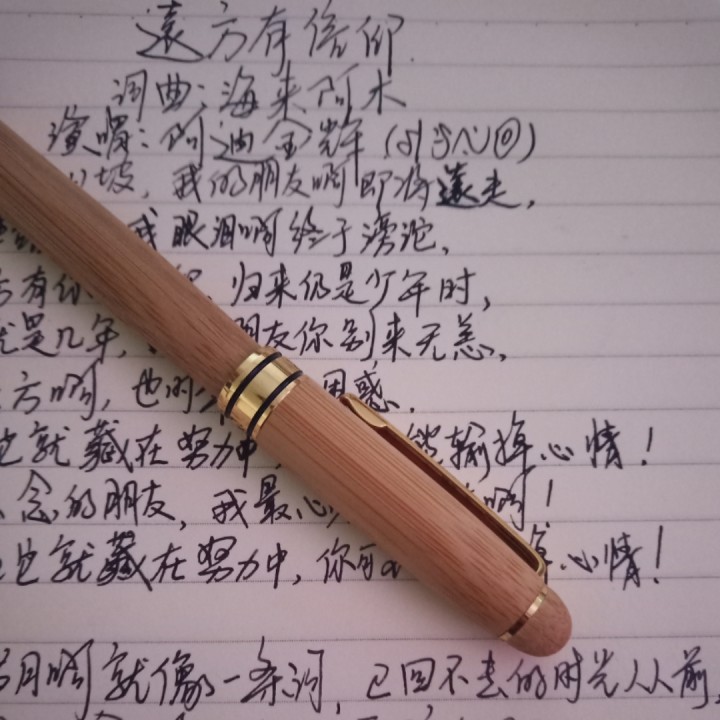 遠方有信仰
词曲:海来阿木
演唱:阿迪
坡，我的朋友啊即将遠走，
我眼泪啊终于滂沱，
有你 归来仍是少年时，
是几年， 朋友你别来无恙，
方啊，也 困惑，
也就藏在努力中， 输掉心情！
念的朋友，我最心 啊！
也就藏在努力中，你可 心情！
月啊就像一条河，已回不去的时光从前，